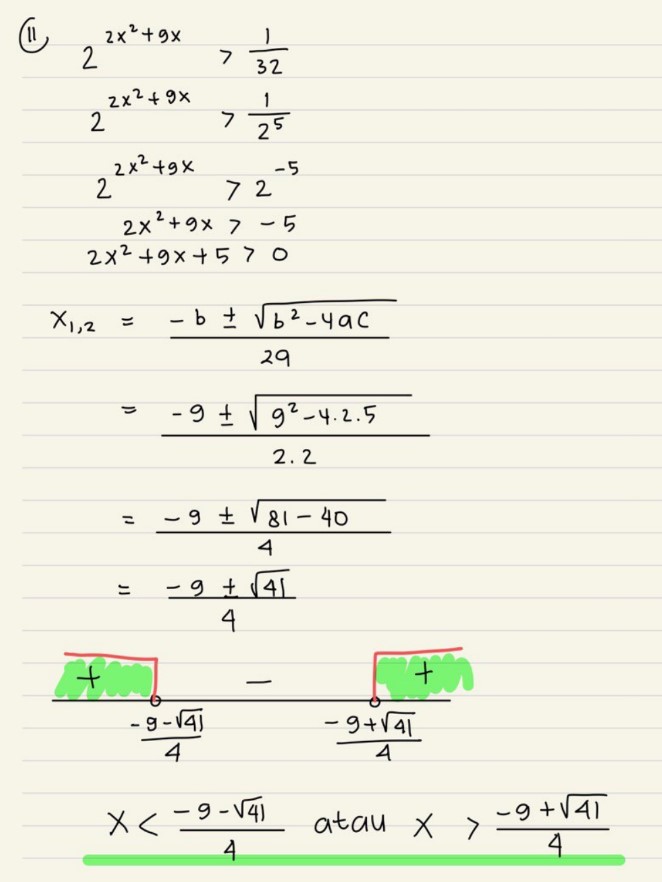 11
2^(2x²+9x) > 1/32
2^(2x²+9x) > 1/2⁵
2^(2x²+9x) > 2⁻⁵
2x²+9x > -5
2x²+9x+5 > 0
x₁,₂ = (-b ± √(b²-4ac))/2a
= (-9 ± √(9²-4.2.5))/2.2
= (-9 ± √(81-40))/4
= (-9 ± √41)/4
+ - +
(-9-√41)/4 (-9+√41)/4
x < (-9-√41)/4 atau x > (-9+√41)/4